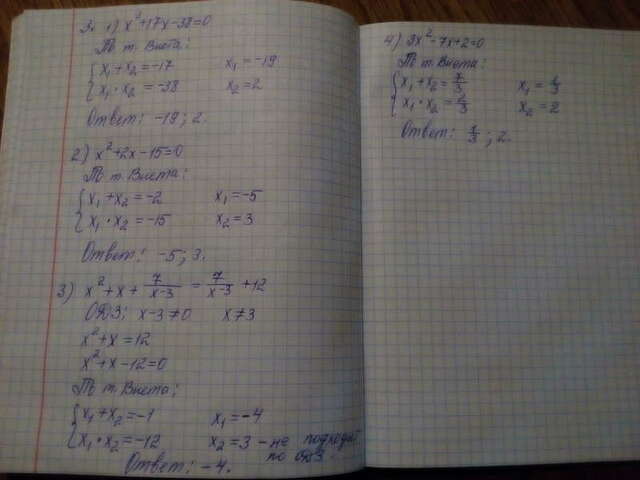 3. 1) x²+17x-38=0
По т. Виета:
{x₁+x₂=-17 x₁=-19
{x₁·x₂=-38 x₂=2
Ответ: -19; 2.
2) x²+2x-15=0
По т. Виета:
{x₁+x₂=-2 x₁=-5
{x₁·x₂=-15 x₂=3
Ответ: -5; 3.
3) x²+x+7/(x-3)=7/(x-3)+12
ОДЗ: x-3≠0 x≠3
x²+x=12
x²+x-12=0
По т. Виета:
{x₁+x₂=-1 x₁=-4
{x₁·x₂=-12 x₂=3 - не подходит
по ОДЗ.
Ответ: -4.
4) 3x²-7x+2=0
По т. Виета:
{x₁+x₂=7/3 x₁=1/3
{x₁·x₂=2/3 x₂=2
Ответ: 1/3; 2.